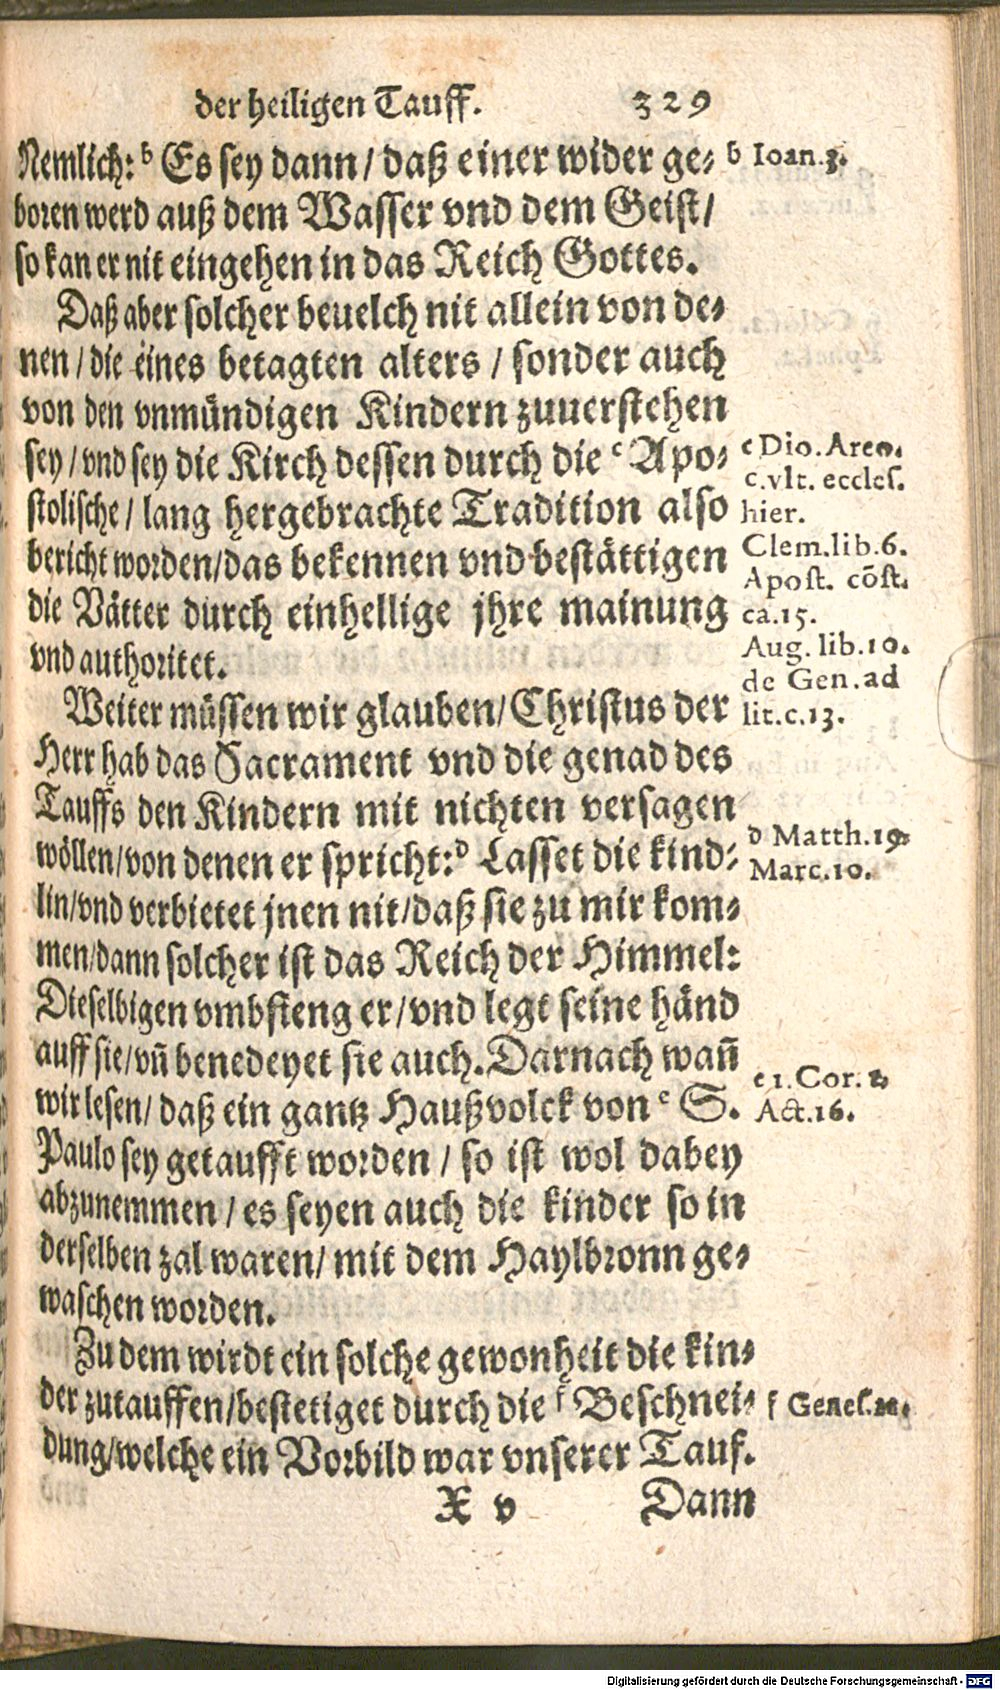 der heiligen Tauff. 329
Nemlich: b Es sey dann / daß einer wider ge-
b Ioan.3.
boren werd auß dem Wasser vnd dem Geist /
so kan er nit eingehen in das Reich Gottes.
Daß aber solcher beuelch nit allein von de-
nen / die eines betagten alters / sonder auch
von den vnmündigen Kindern zuuerstehen
sey / vnd sey die Kirch dessen durch die c Apo-
stolische / lang hergebrachte Tradition also
bericht worden / das bekennen vnd bestättigen
die Vätter durch einhellige jhre mainung
vnd authoritet.
c Dio. Areo.
c.vlt. eccles.
hier.
Clem.lib.6.
Apost. cõst.
ca.15.
Aug. lib.10.
de Gen. ad
lit.c.13.
Weiter müssen wir glauben / Christus der
Herr hab das Sacrament vnd die genad des
Tauffs den Kindern mit nichten versagen
wöllen / von denen er spricht: d Lasset die kind-
lin / vnd verbietet jnen nit / daß sie zu mir kom-
men / dann solcher ist das Reich der Himmel:
d Matth.19.
Marc.10.
Dieselbigen vmbfieng er / vnd legt seine händ
auff sie / vñ benedeyet sie auch. Darnach wañ
wir lesen / daß ein gantz Haußvolck von e S.
Paulo sey getaufft worden / so ist wol dabey
abzunemmen / es seyen auch die kinder so in
derselben zal waren / mit dem Haylbronn ge-
waschen worden.
e 1. Cor. 1.
Act.16.
Zu dem wirdt ein solche gewonheit die kin-
der zutauffen / bestetiget durch die f Beschnei-
f Genes.
dung / welche ein Vorbild war vnserer Tauf.
X v Dann
Digitalisierung gefördert durch die Deutsche Forschungsgemeinschaft - DFG